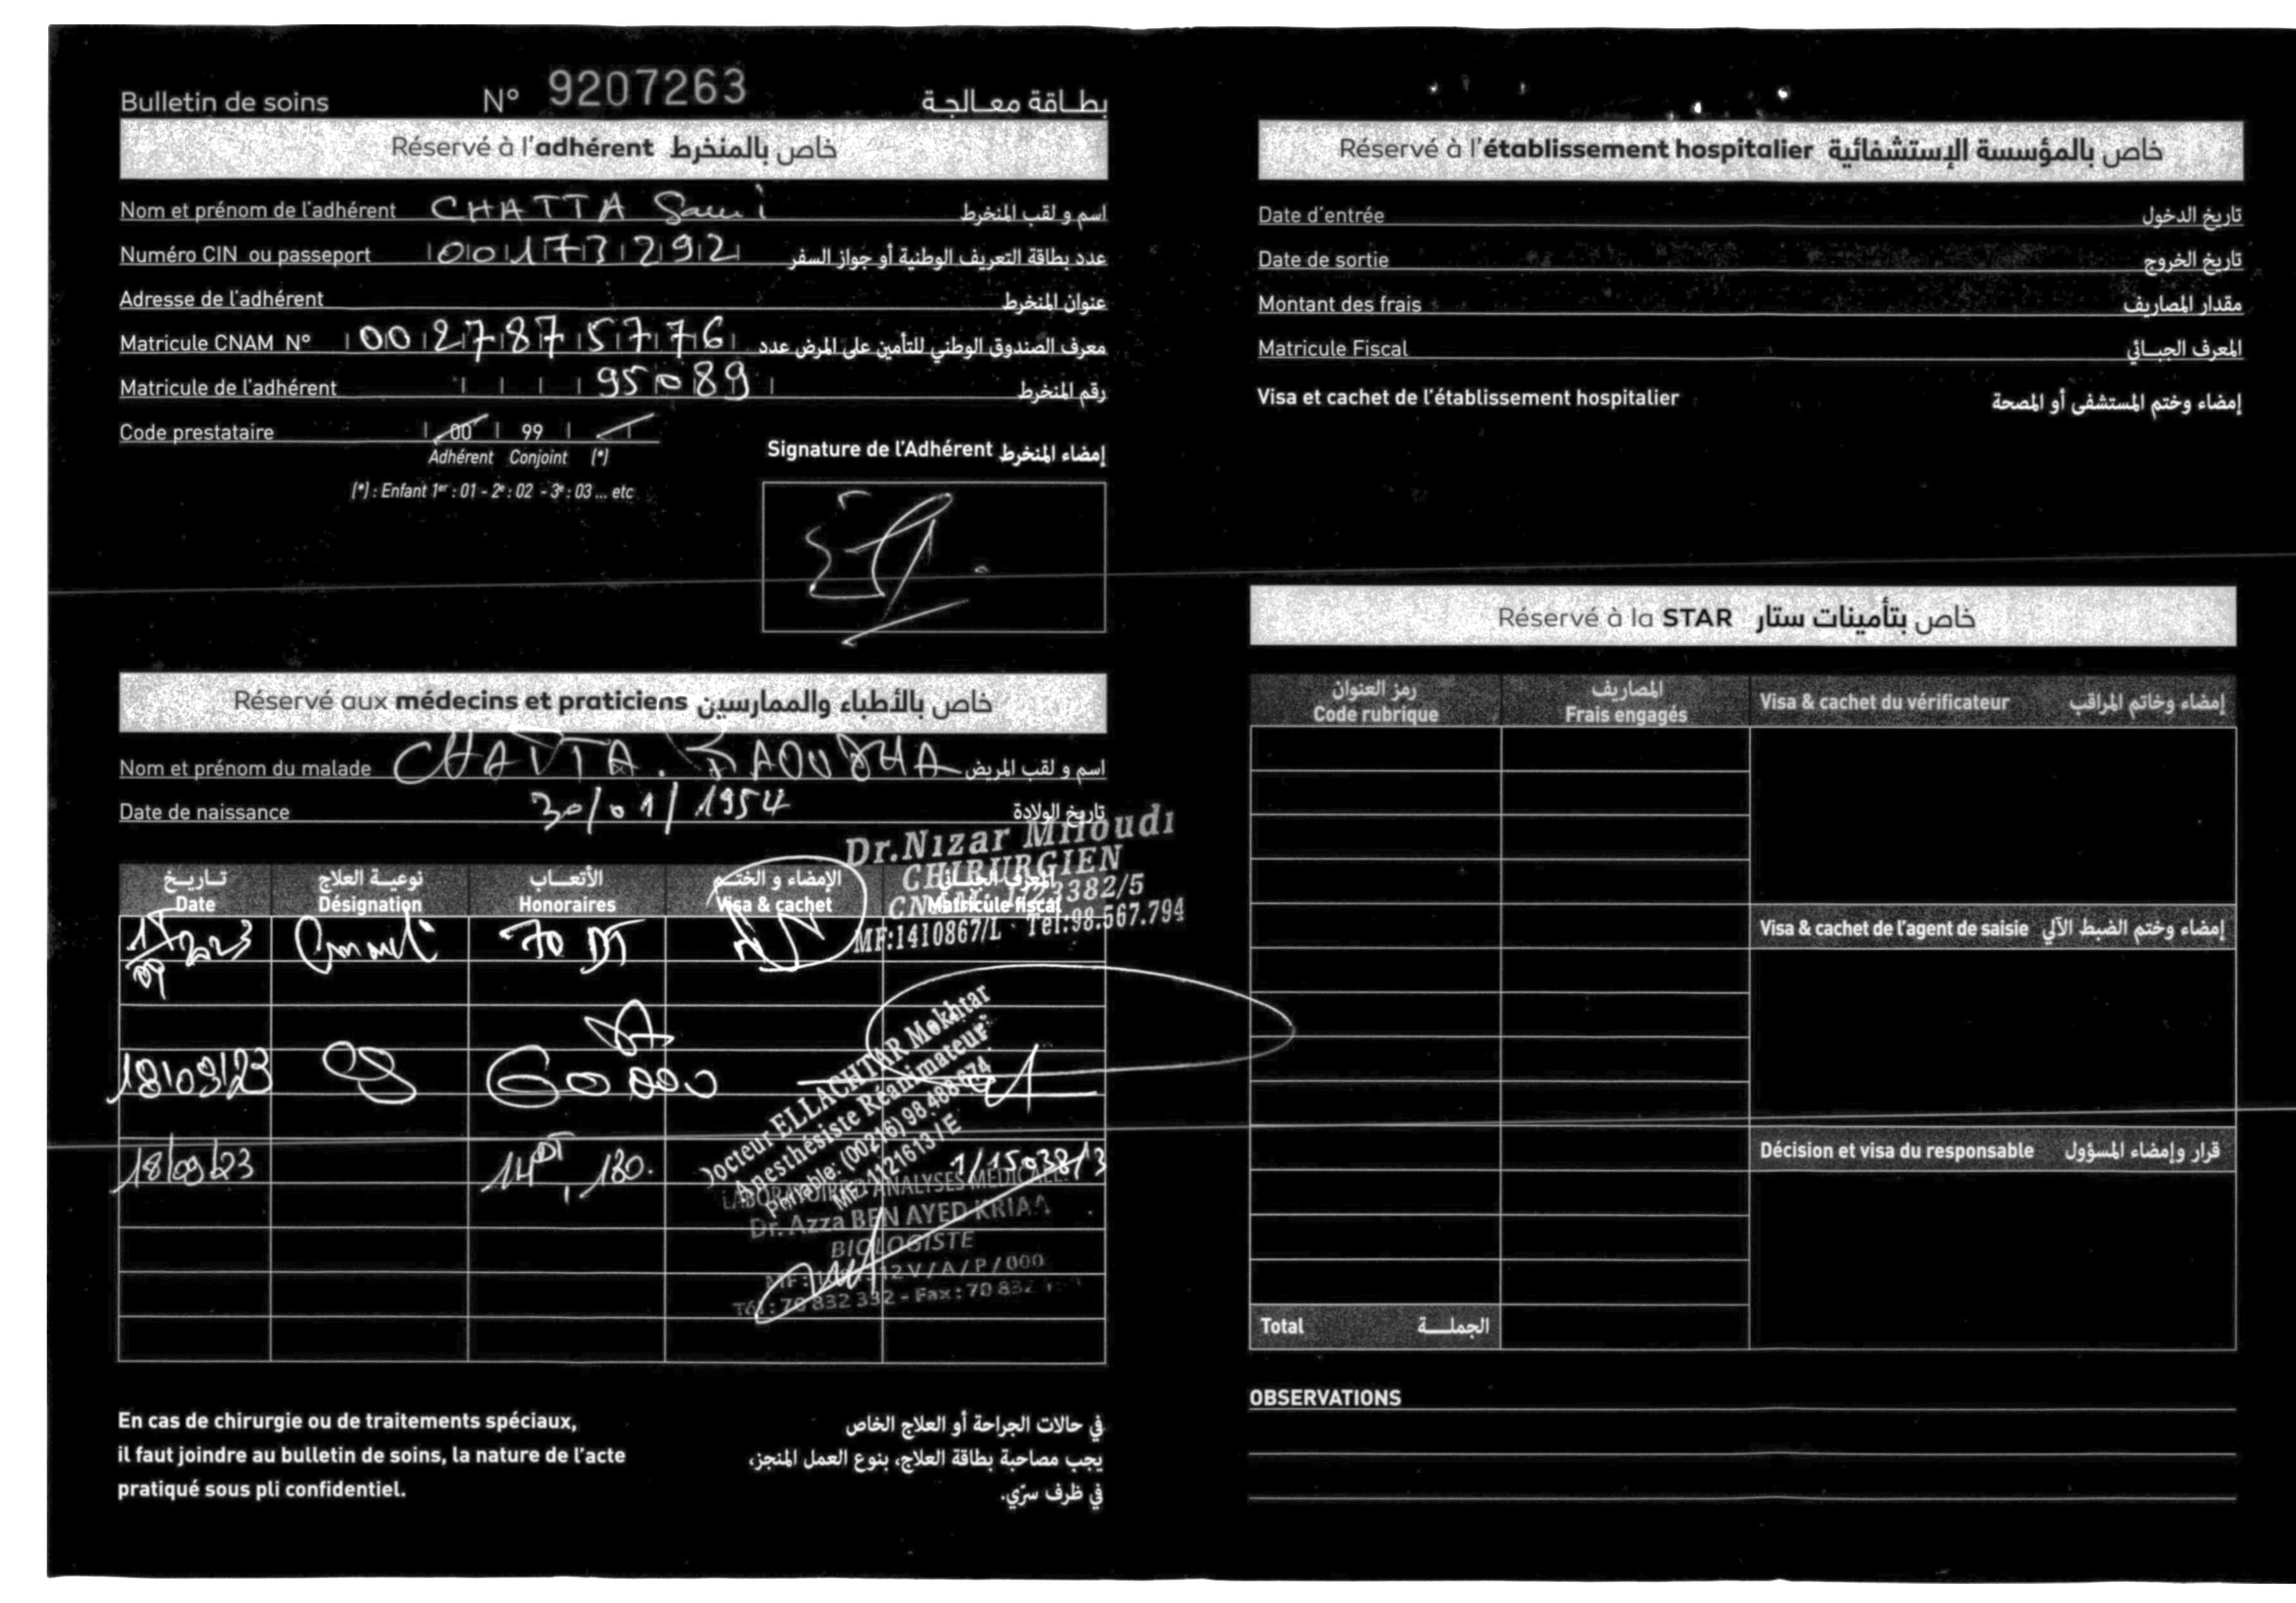 Bulletin de soins N° 9207263 بطاقة معالجة
Réservé à l'adhérent خاص بالمنخرط
Nom et prénom de l'adhérent CHATTA Sami اسم و لقب المنخرط
Numéro CIN ou passeport 00173292 عدد بطاقة التعريف الوطنية أو جواز السفر
Adresse de l'adhérent عنوان المنخرط
Matricule CNAM N° 0027875776 معرف الصندوق الوطني للتأمين على المرض عدد
Matricule de l'adhérent 95089 رقم المنخرط
Code prestataire 00 99
Adhérent Conjoint (*)
(*) : Enfant 1er : 01 - 2e : 02 - 3e : 03 ... etc
Signature de l'Adhérent إمضاء المنخرط
Réservé aux médecins et praticiens خاص بالأطباء والممارسين
Nom et prénom du malade CHATTA RAOUDHA اسم و لقب المريض
Date de naissance 30/01/1954 تاريخ الولادة
Dr.Nizar Miloudi
CHIRURGIEN
3382/5
MF:1410867/L Tél:98.567.794
تاريخ نوعية العلاج الأتعاب الإمضاء و الختم المعرف الجبائي
Date Désignation Honoraires Visa & cachet Matricule fiscal
2023 70 DT
09
18/09/23
Docteur ELLACHTAR Mokhtar
Anesthésiste Réanimateur
Portable: (00216) 98 488 674
MF: 1121613 / E
18/09/23 14DT,130. 1/15038/13
LABORATOIRE D'ANALYSES MEDICALES
Dr. Azza BEN AYED KRIAA
BIOLOGISTE
V / A / P / 000
Tél : 70 832 332 - Fax : 70 832
En cas de chirurgie ou de traitements spéciaux,
il faut joindre au bulletin de soins, la nature de l'acte
pratiqué sous pli confidentiel.
في حالات الجراحة أو العلاج الخاص
يجب مصاحبة بطاقة العلاج، بنوع العمل المنجز،
في ظرف سرّي.
Réservé à l'établissement hospitalier خاص بالمؤسسة الإستشفائية
Date d'entrée تاريخ الدخول
Date de sortie تاريخ الخروج
Montant des frais مقدار المصاريف
Matricule Fiscal المعرف الجبائي
Visa et cachet de l'établissement hospitalier إمضاء وختم المستشفى أو المصحة
Réservé à la STAR خاص بتأمينات ستار
رمز العنوان المصاريف
Code rubrique Frais engagés Visa & cachet du vérificateur إمضاء وخاتم المراقب
Visa & cachet de l'agent de saisie إمضاء وختم الضبط الآلي
Décision et visa du responsable قرار وإمضاء المسؤول
Total الجملة
OBSERVATIONS